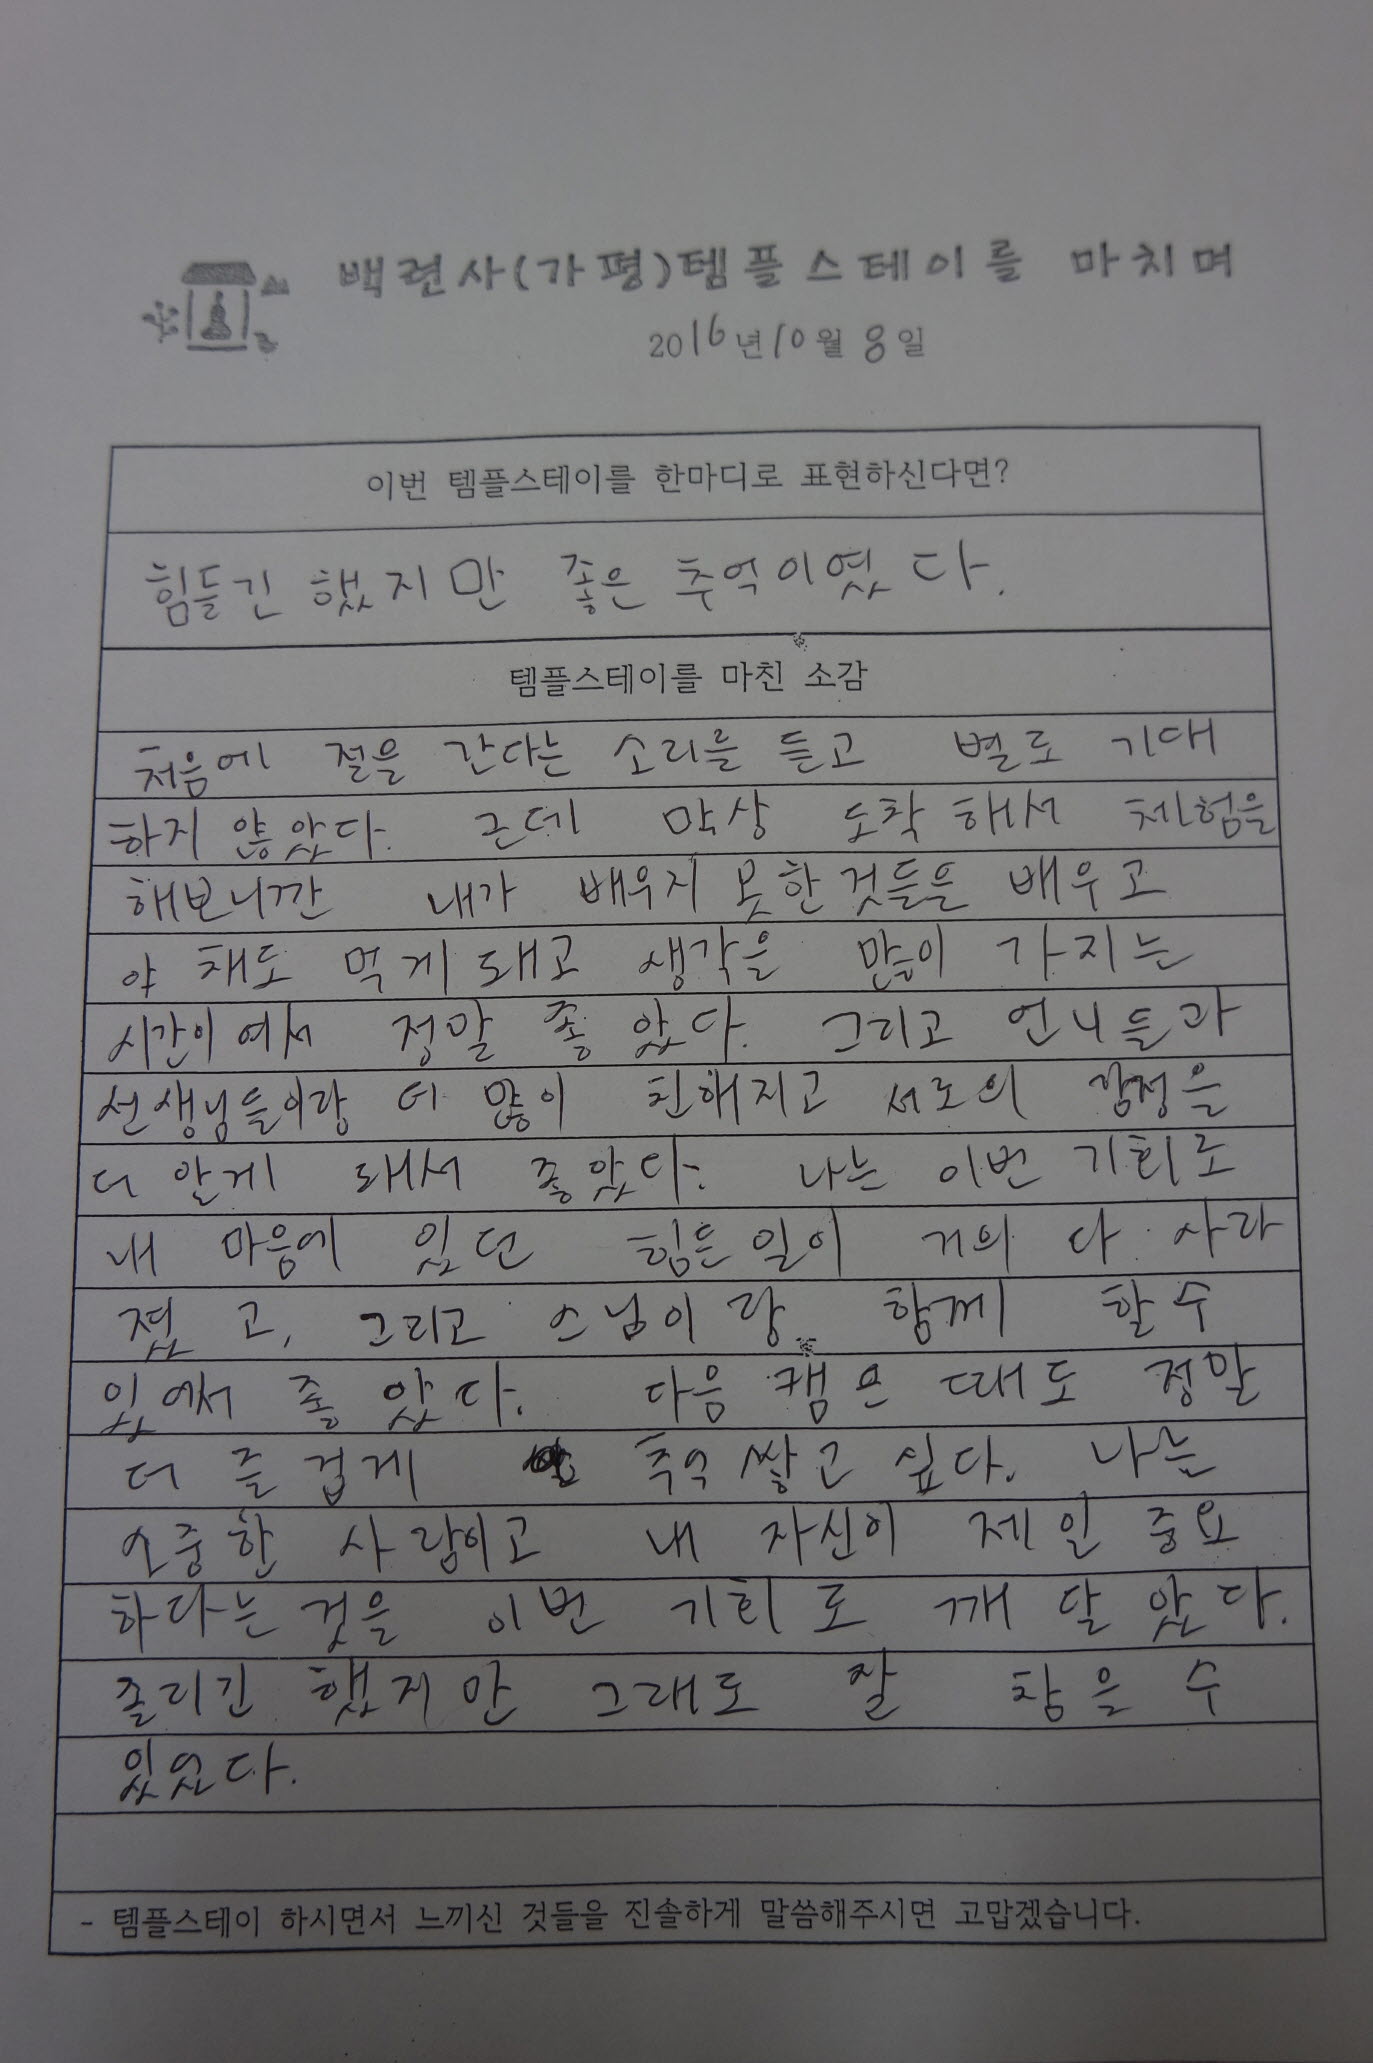 백련사(가평)템플스테이를 마치며
2016년10월 8일
이번 템플스테이를 한마디로 표현하신다면?
힘들긴 했지만 좋은 추억이였다.
템플스테이를 마친 소감
처음에 절을 간다는 소리를 듣고 별로 기대
하지 않았다. 근데 막상 도착해서 체험을
해보니깐 내가 배우지 못한것들을 배우고
야채도 먹게돼고 생각을 많이 가지는
시간이여서 정말 좋았다. 그리고 언니들과
선생님들이랑 더 많이 친해지고 서로의 감정을
더 알게 돼서 좋았다. 나는 이번 기회로
내 마음에 있던 힘든일이 거의 다 사라
졌고, 그리고 스님이랑 함께 할수
있어서 좋았다. 다음 캠프 때도 정말
더 즐겁게 추억 쌓고 싶다. 나는
소중한 사람이고 내 자신이 제일 중요
하다는 것을 이번 기회로 깨달았다.
졸리긴 했지만 그래도 잘 참을 수
있었다.
- 템플스테이 하시면서 느끼신 것들을 진솔하게 말씀해주시면 고맙겠습니다.